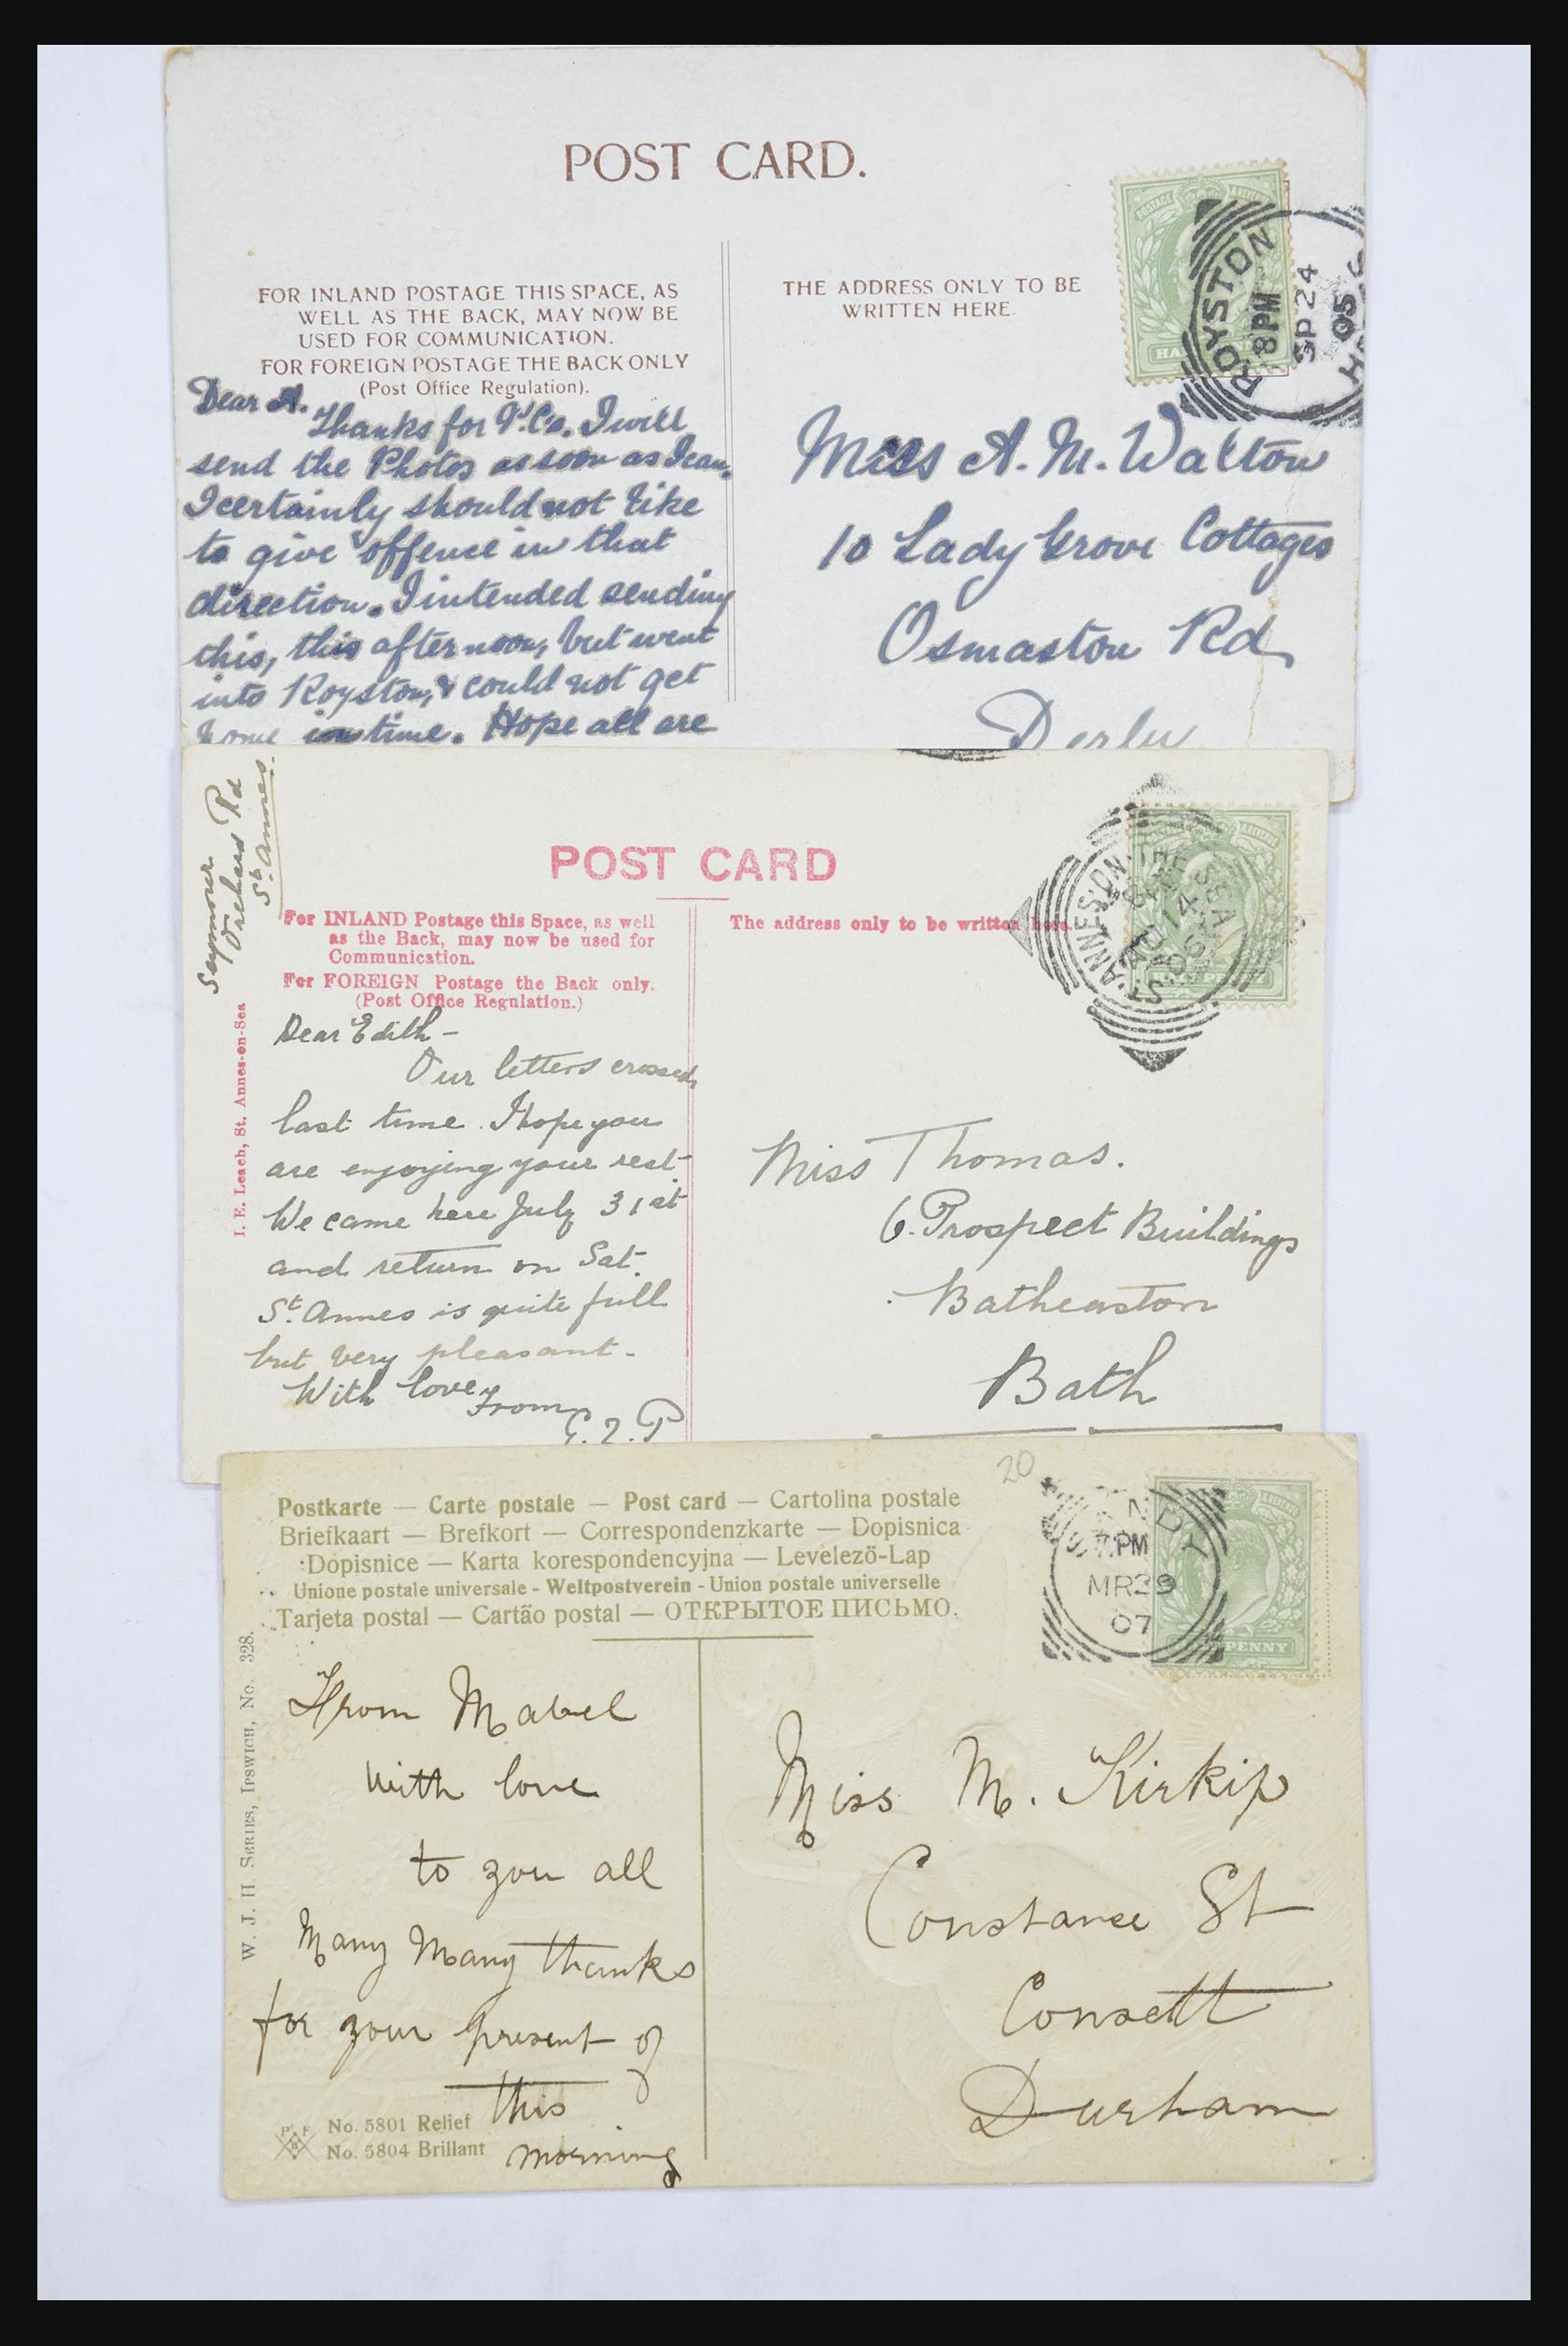 POST CARD.
FOR INLAND POSTAGE THIS SPACE, AS
WELL AS THE BACK, MAY NOW BE
USED FOR COMMUNICATION.
FOR FOREIGN POSTAGE THE BACK ONLY
(Post Office Regulation).
THE ADDRESS ONLY TO BE
WRITTEN HERE.
POSTAGE
ROYSTON
8PM
SP 24
05
Dear A.
Thanks for P.Cs. I will
send the Photos as soon as I can.
I certainly should not like
to give offence in that
direction. I intended sending
this, this afternoon, but went
into Royston, & could not get
home in time. Hope all are
Miss A. M. Walton
10 Lady Grove Cottages
Osmaston Rd
Derby
Seymour
Orchard Rd
St. Annes.
POST CARD
For INLAND Postage this Space, as well
as the Back, may now be used for
Communication.
For FOREIGN Postage the Back only.
(Post Office Regulation.)
The address only to be written here.
ST. ANNES ON THE SEA
AU 14
I. E. Leach, St. Annes-on-Sea
Dear Edith -
Our letters crossed
last time. I hope you
are enjoying your rest.
We came here July 31st
and return on Sat.
St. Annes is quite full
but very pleasant.
With love
From
Miss Thomas.
6. Prospect Buildings
Batheaston
Bath
20
Postkarte — Carte postale — Post card — Cartolina postale
Briefkaart — Brefkort — Correspondenzkarte — Dopisnica
Dopisnice — Karta korespondencyjna — Levelezö-Lap
Unione postale universale - Weltpostverein - Union postale universelle
Tarjeta postal — Cartão postal — ОТКРЫТОЕ ПИСЬМО.
7.PM
MR 29
07
PENNY
W. J. H SERIES, IPSWICH, No. 328.
From Mabel
with love
to you all
Many Many thanks
for your present of
this
morning
Miss M. Kirkip
Constance St
Consett
Durham
P F
B
No. 5801 Relief
No. 5804 Brillant